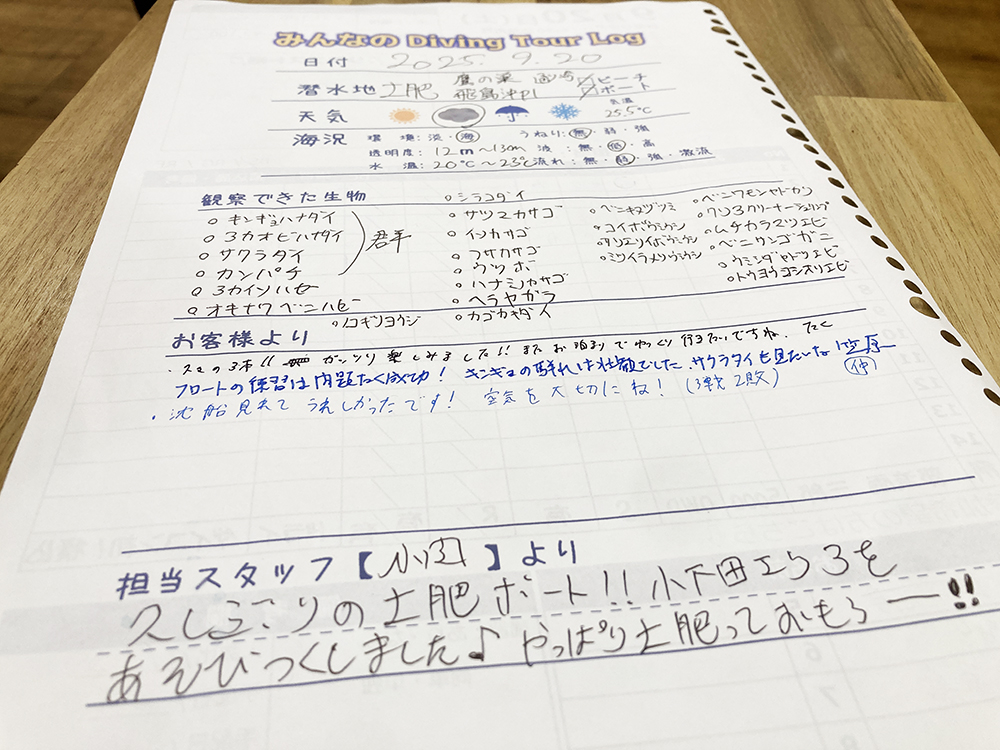 みんなの Diving Tour Log
日付 2025. 9. 20
潜水地 土肥 鷹の巣 ビーチ
飛島沖P1 ボート
天気 気温 25.5℃
海況 環境:淡・海 うねり:無・弱・強
透明度:12m〜13m 波:無・低・高
水温:20℃〜23℃ 流れ:無・弱・強・激流
観察できた生物
○キンギョハナダイ
○ミカオビハナダイ
○サクラダイ
○カンパチ
群千
○ミカイソハゼ
○オキナワベニハゼ
○ノコギリヨウジ
○シラコダイ
○サツマカサゴ
○イソカサゴ
○フサカサゴ
○ウツボ
○ハナミノカサゴ
○ヘラヤガラ
○カゴカキダイ
○ベニキヌヅツミ
○コイボウミウシ
○ミツイラメリウミウシ
○ベニワモンヤドカリ
○クリアクリーナーシュリンプ
○ムチカラマツエビ
○ベニサンゴガニ
○ウミシダヤドリエビ
○トウヨウヨコシマエビ
お客様より
・久々の3本!! ガッツリ楽しみました!! また お泊りでゆっくり行きたいですね。
フロートの練習は問題なく成功! キンギョの群れは壮観でした。サクラダイも見たいな
・沈船見れて うれしかったです! 空気を大切にね! (3戦2敗)
担当スタッフ【小宮】より
久しぶりの土肥ボート!! 小下田エリアを
あそびつくしました♪ やっぱり土肥っておもろー!!